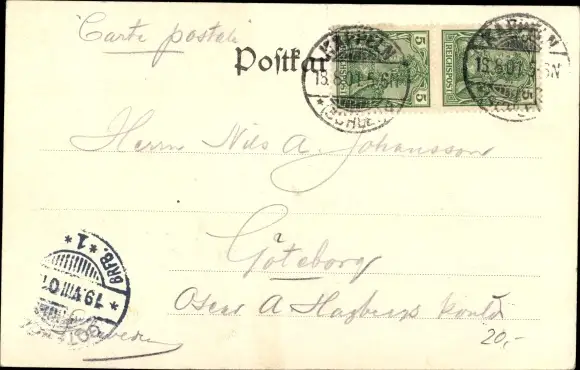 Carte postale
Postkar
KAPPELN
18.8.01 5-6N
* (SCHLEI)
5 REICHSPOST 5
KAPPELN
18.8.01 5-6N
Herrn Nils A. Johansson
Göteborg
Oscar A Hagbergs Kontor
20,-
BRFB. * 1 *
* 19 VIII 01 *